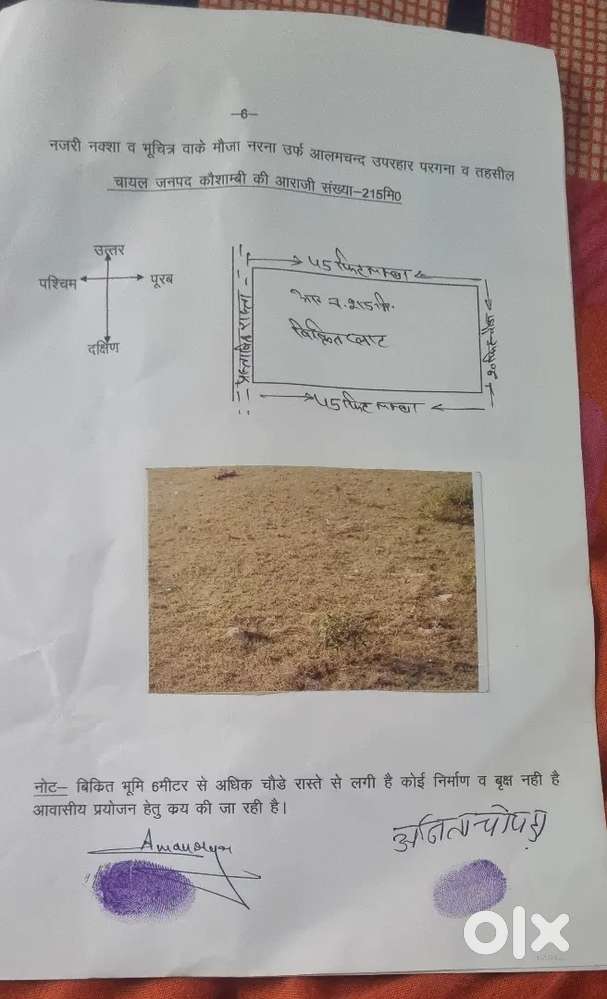 —6—
नजरी नक्शा व भूचित्र वाके मौजा नरना उर्फ आलमचन्द उपरहार परगना व तहसील
चायल जनपद कौशाम्बी की आराजी संख्या–215मि0
उत्तर
पश्चिम पूरब
दक्षिण
४५ फिट लम्बा
प्रस्तावित रास्ता
विक्रित प्लाट
४५ फिट लम्बा
नोट– बिकित भूमि 6मीटर से अधिक चौडे रास्ते से लगी है कोई निर्माण व बृक्ष नही है
आवासीय प्रयोजन हेतु कय की जा रही है।
अनिता चोपड़ा
olx